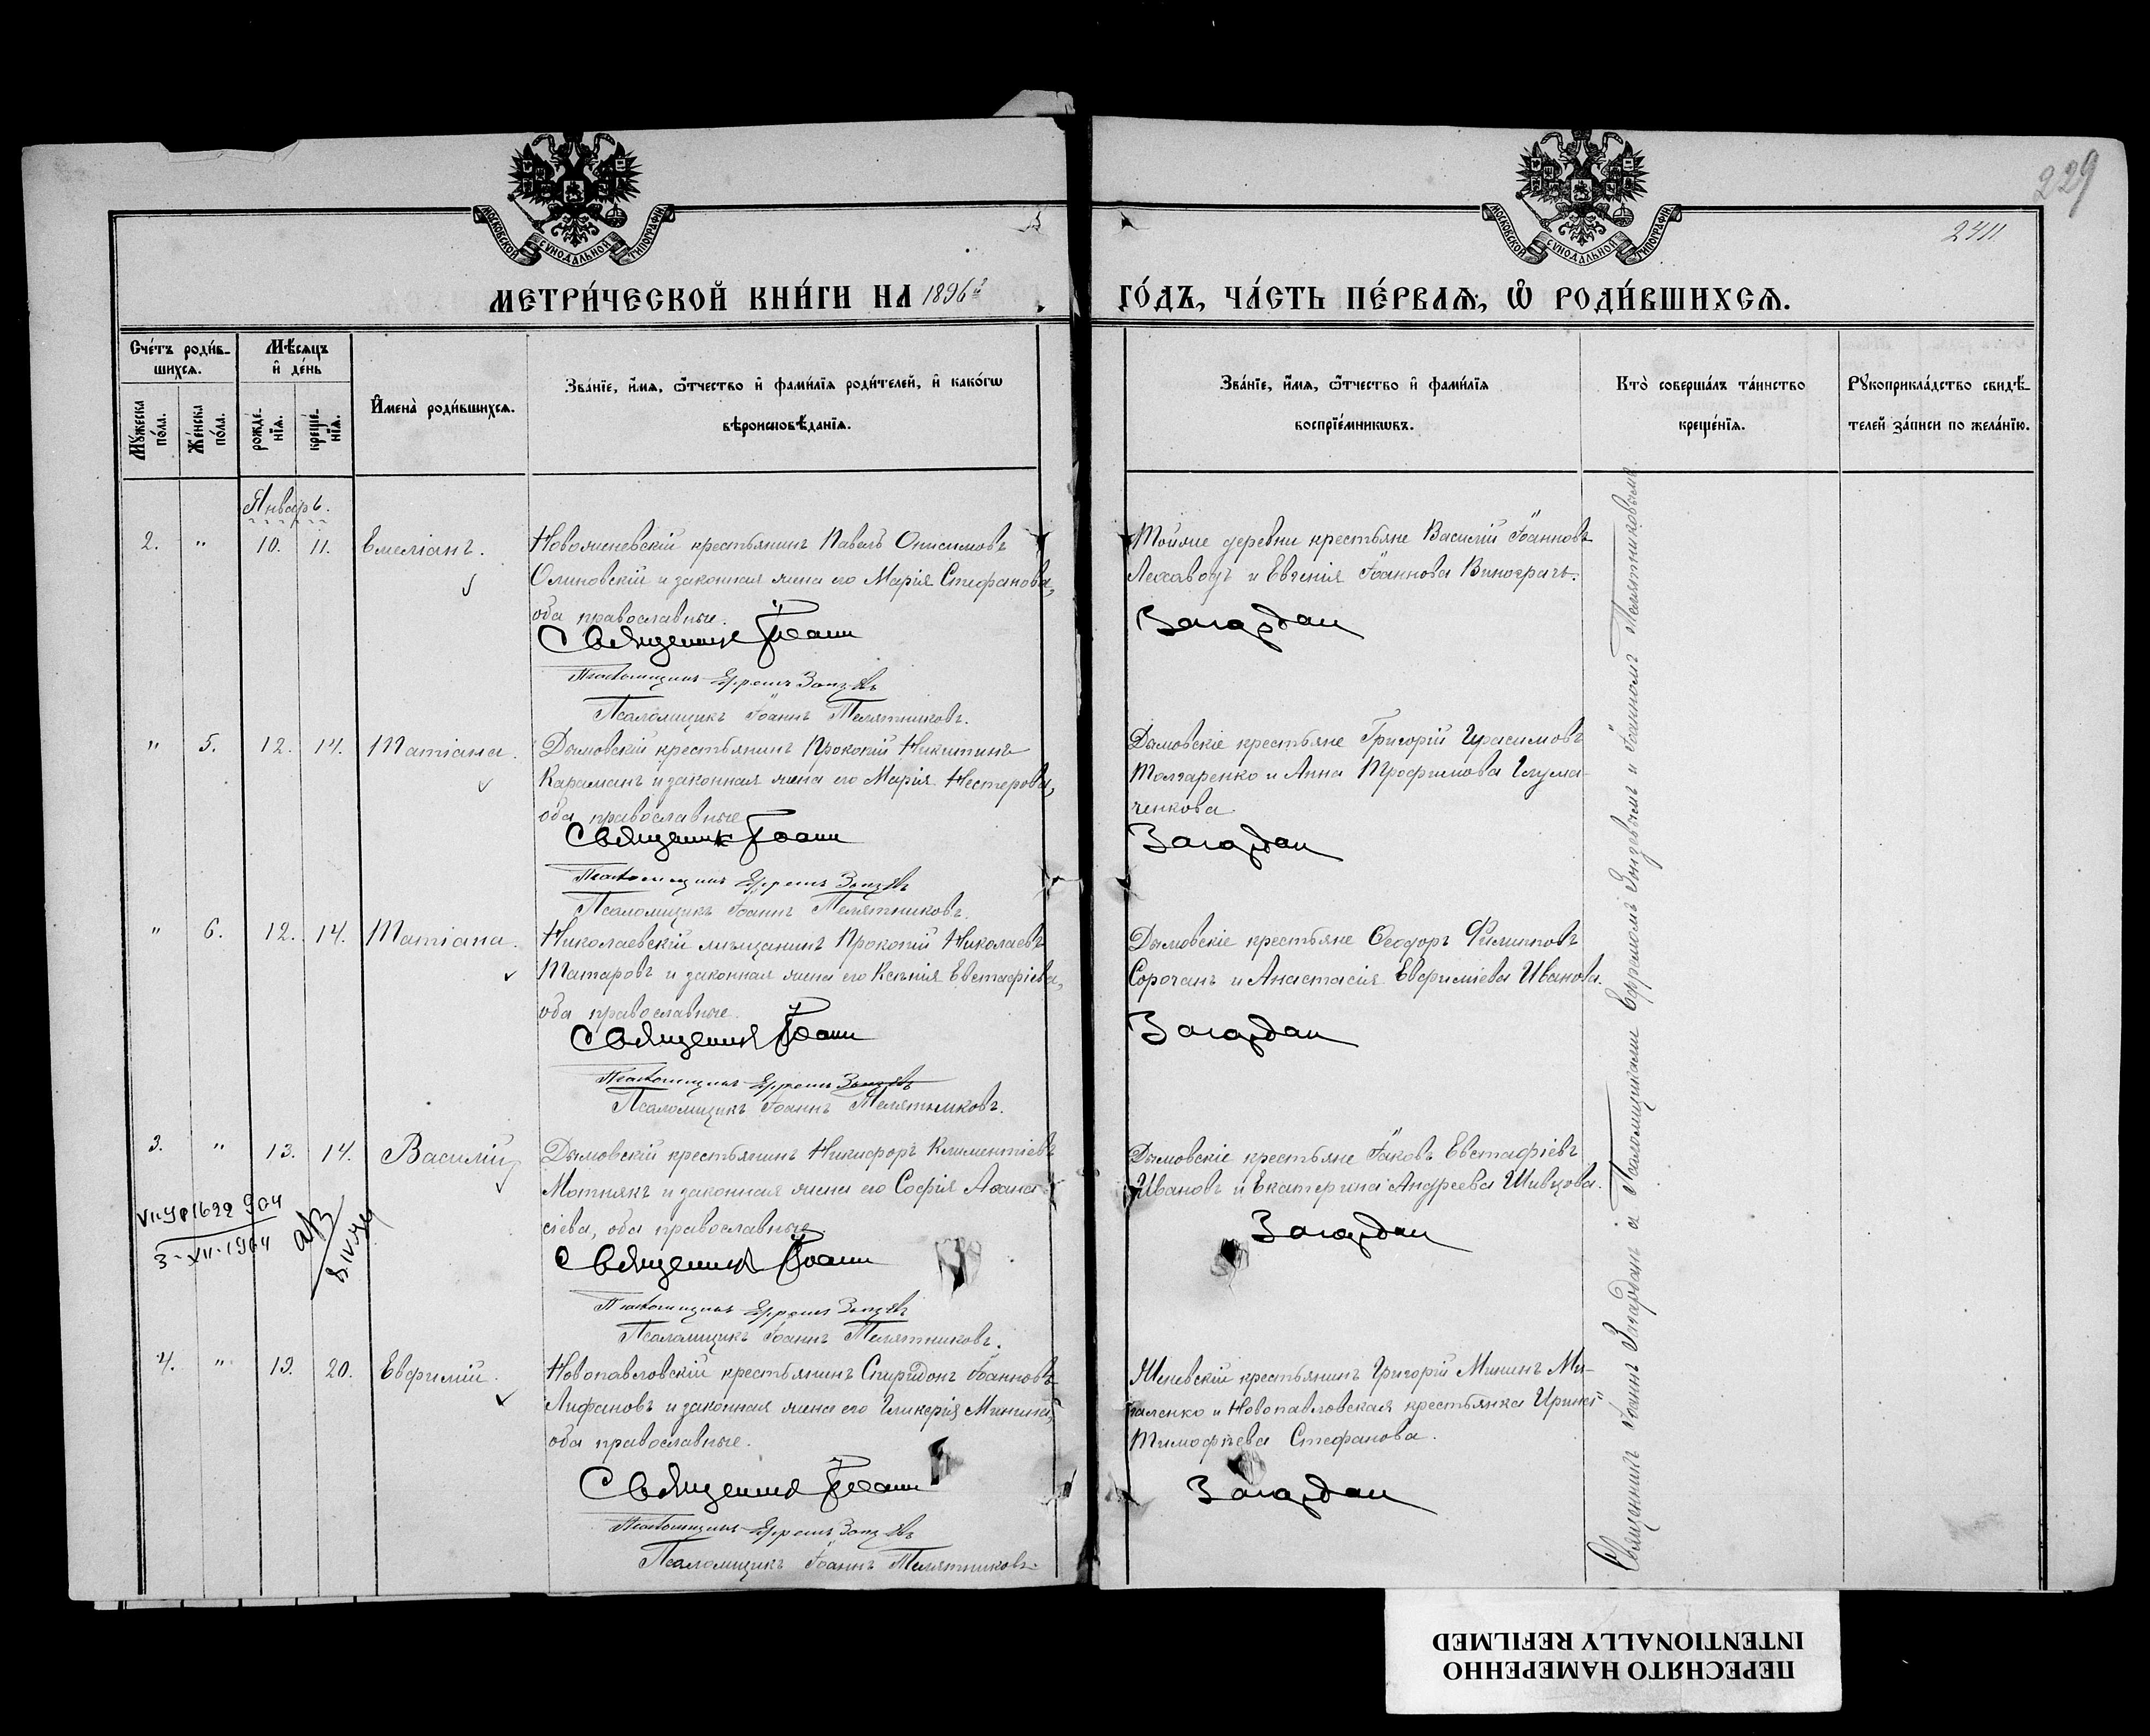 229
2411
МОСКОВСКОЙ СѴНОДАЛЬНОЙ ТИПОГРАФІИ
МОСКОВСКОЙ СѴНОДАЛЬНОЙ ТИПОГРАФІИ
МЕТРИ́ЧЕСКОЙ КНИ́ГИ НА 1896й ГО́ДЪ, ЧА́СТЬ ПЕ́РВАѦ, Ѡ҆ РОДИ́ВШИХСѦ.
Сче́тъ роди́в-
шихсѧ.
Мѣ́сѧцъ
и҆ де́нь
Мꙋ́жеска по́ла.
Же́нска по́ла.
рожде́-
нїѧ.
креще́-
нїѧ.
И҆мена̀ роди́вшихсѧ.
Зва́нїе, и҆́мѧ, ѻ҆́тчество и҆ фами́лїѧ роди́телей, и҆ како́гѡ
вѣроисповѣ́данїѧ.
Зва́нїе, и҆́мѧ, ѻ҆́тчество и҆ фами́лїѧ
воспрїе́мникѡвъ.
Кто̀ соверша́лъ та́инство
креще́нїѧ.
Рꙋкоприкла́дство свидѣ́-
телей за́писи по жела́нїю.
Январь.
2. " 10. 11. Емеліанъ.
Новоженевскій крестьянинъ Павелъ Онисимовъ
Олиновскій и законная жена его Марія Стефанова,
оба православные.
Священникъ Іоаннъ
Псаломщикъ Ефремъ
Псаломщикъ Іоаннъ Телятниковъ.
Тойже деревни крестьяне Василій Іоанновъ
и Евгенія Іоаннова Виноградъ.
Загордан
" 5. 12. 14. Татіана.
Дымовскій крестьянинъ Прокопій Никитинъ
Караманъ и законная жена его Марія Нестерова,
оба православные
Священникъ Іоаннъ
Псаломщикъ Ефремъ
Псаломщикъ Іоаннъ Телятниковъ.
Дымовскіе крестьяне Григорій Герасимовъ
и Анна Трофимова
ченкова.
Загордан
" 6. 12. 14. Татіана.
Николаевскій мѣщанинъ Прокопій Николаевъ
Татаровъ и законная жена его Ксенія Евстафіева,
оба православные.
Священникъ Іоаннъ
Псаломщикъ Ефремъ
Псаломщикъ Іоаннъ Телятниковъ.
Дымовскіе крестьяне Ѳеодоръ Филипповъ
Сорочанъ и Анастасія Евфиміева Иванова.
Загордан
3. " 13. 14. Василій
Дымовскій крестьянинъ Никифоръ Климентіевъ
Мотнякъ и законная жена его Софія Аѳана-
сіева, оба православные.
Священникъ Іоаннъ
Псаломщикъ Ефремъ
Псаломщикъ Іоаннъ Телятниковъ.
Дымовскіе крестьяне Іаковъ Евстафіевъ
Ивановъ и Екатерина Андреева Шевцова.
Загордан
3-XII-1964
4. " 19. 20. Евфимій.
Новопавловскій крестьянинъ Спиридонъ Іоанновъ
Лифановъ и законная жена его Гликерія Минина,
оба православные.
Священникъ Іоаннъ
Псаломщикъ Ефремъ
Псаломщикъ Іоаннъ Телятниковъ.
Женевскій крестьянинъ Григорій Мининъ Ми-
халенко и Новопавловская крестьянка Ирина
Тимофѣева Стефанова.
Загордан
Священникъ Іоаннъ Загордан а Псаломщиками Ефремомъ и Іоанномъ Телятниковымъ.
ПЕРЕСНЯТО НАМЕРЕННО
INTENTIONALLY REFILMED